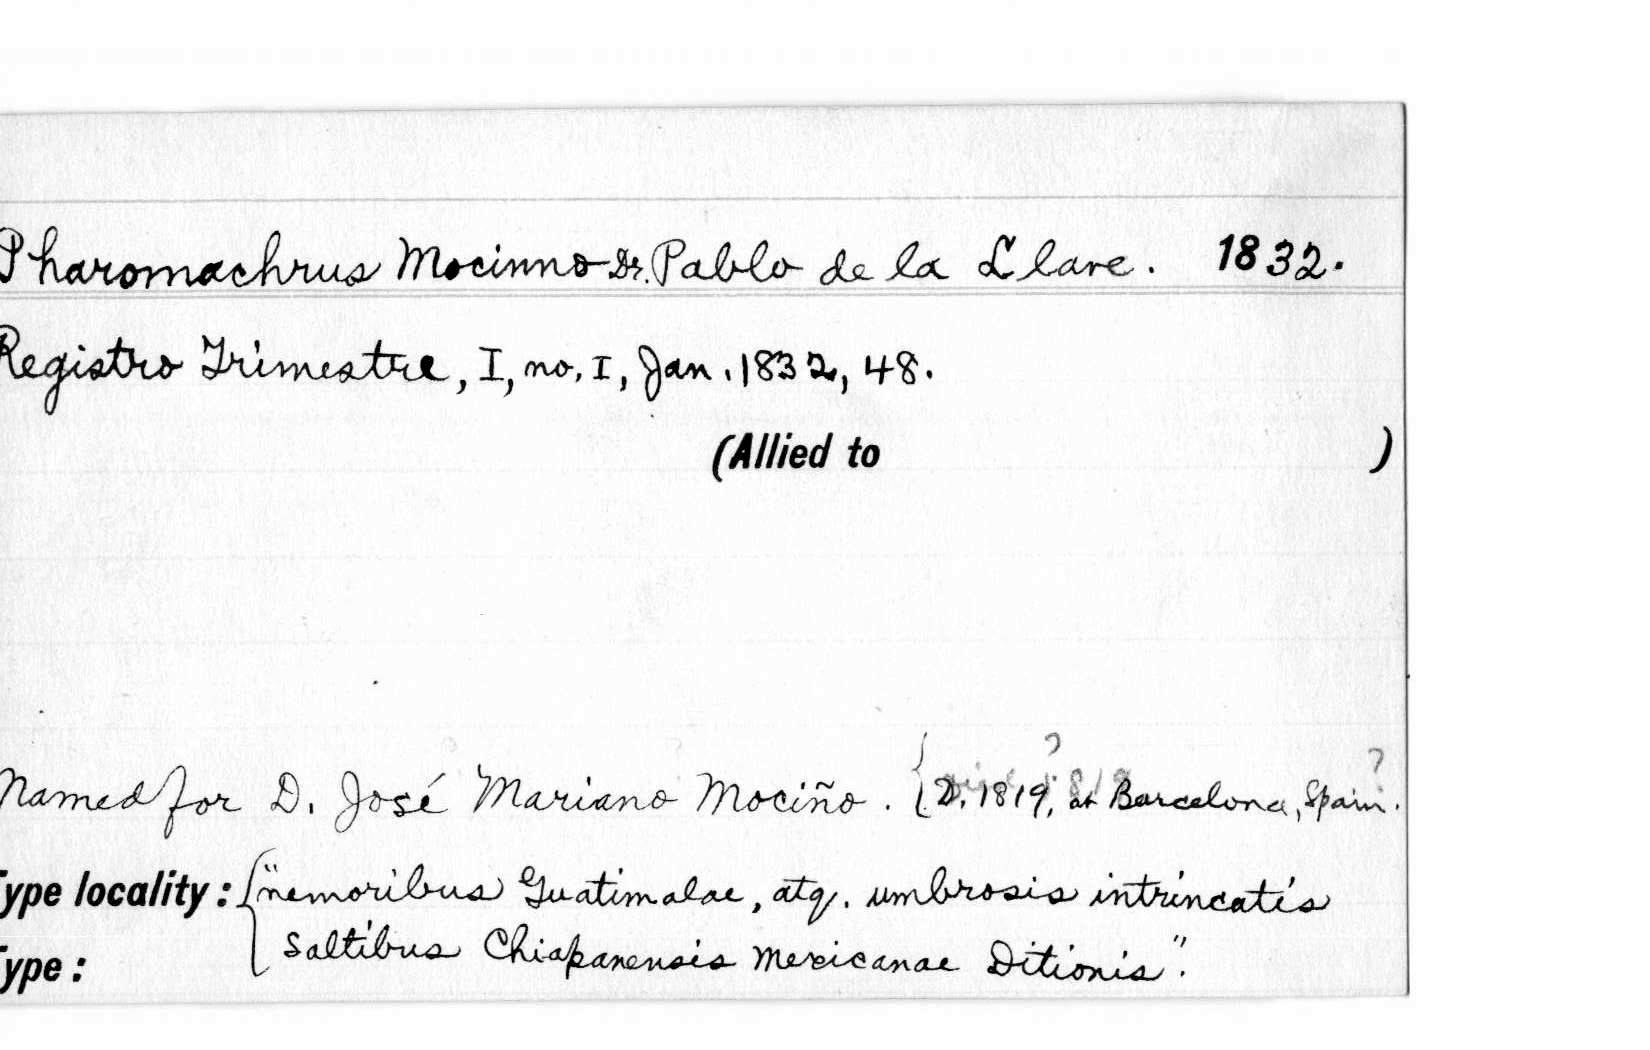 Pharomachrus Mocinno Dr. Pablo de la Llave. 1832.
Registro Trimestre, I, no. I, Jan. 1832, 48.
(Allied to )
? ?
Named for D. José Mariano Mociño. { D. 1819, at Barcelona, Spain.
Type locality: { "nemoribus Guatimalae, atq. umbrosis intrincatis
saltibus Chiapanensis Mexicanae Ditionis".
Type: